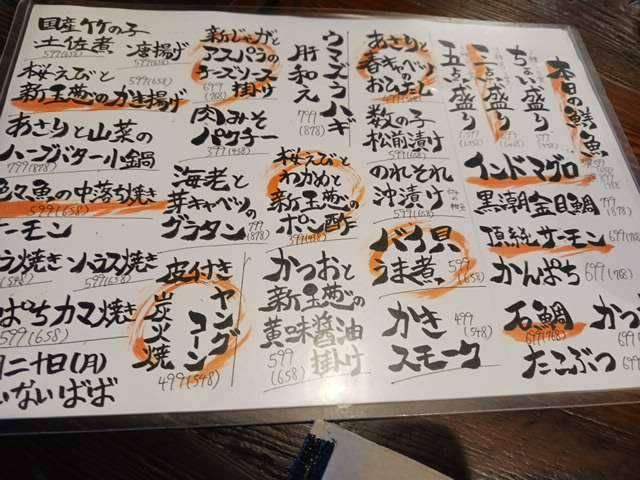 本日の鮮魚
ちょい盛り
二点盛り
五点盛り
インドマグロ
黒潮金目鯛
799
(878)
頂純サーモン
699(768)
かんぱち
699(768)
石鯛
699(768)
かつ
たこぶつ
あさりと
春キャベツの
おひたし
499(548)
数の子
松前漬け
599(658)
のれそれ
沖漬け
599(658)
バイ貝
うま煮
599
(658)
かき
499
(548)
スモーク
ウマズラハギ
肝和え
799
(878)
桜えびと
わかめと
新玉葱の
ポン酢
かつおと
新玉葱の
黄味醤油
掛け
599
(658)
新じゃがと
アスパラの
チーズソース
掛け
699
(768)
肉みそ
パクチー
海老と
芽キャベツの
グラタン
799
(878)
皮付き
ヤング
コーン
炭火焼
499(548)
国産竹の子
土佐煮
599(658)
唐揚げ
599(658)
桜えびと
新玉葱のかき揚げ
599(658)
あさりと山菜の
ハーブバター小鍋
799(878)
色々魚の中落ち焼き
599(658)
サーモン
ハラス焼き
599(658)
ぱちカマ焼き
599(658)
月二十日(月)
いないばば